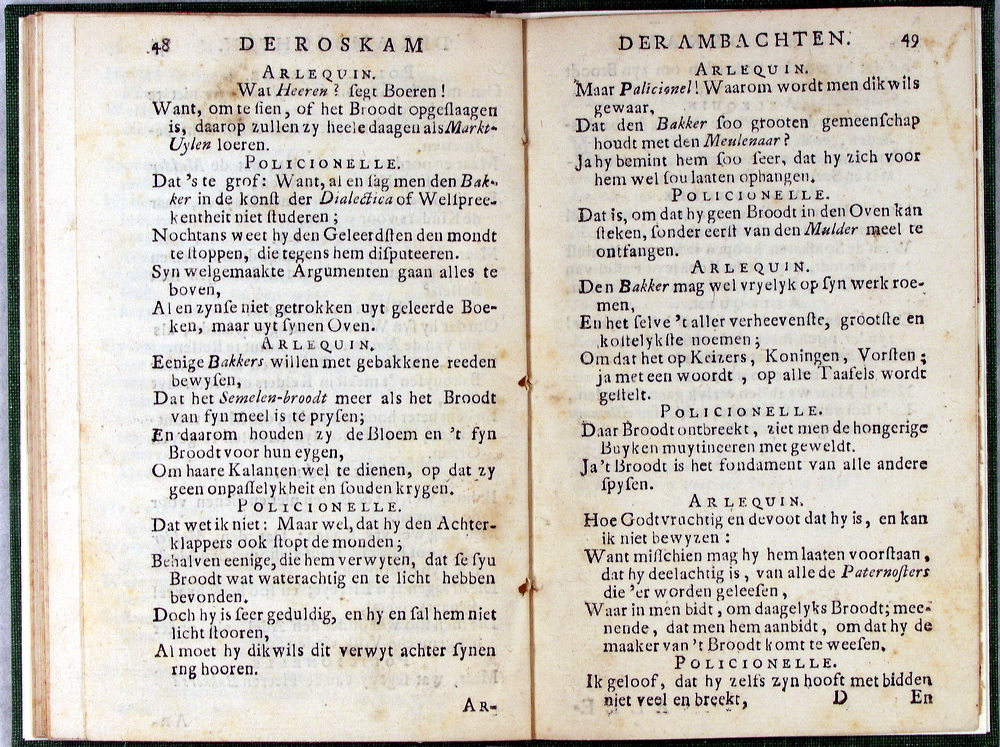 48 DE ROSKAM
ARLEQUIN.
Wat Heeren? ſegt Boeren!
Want, om te ſien, of het Broodt opgeſlaagen
is, daarop zullen zy heele daagen als Markt-
Uylen loeren.
POLICIONELLE.
Dat 's te grof: Want, al en ſag men den Bak-
ker in de konſt der Dialectica of Welſpree-
kentheit niet ſtuderen;
Nochtans weet hy den Geleerdſten den mondt
te ſtoppen, die tegens hem diſputeeren.
Syn welgemaakte Argumenten gaan alles te
boven,
Al en zynſe niet getrokken uyt geleerde Boe-
ken, maar uyt ſynen Oven.
ARLEQUIN.
Eenige Bakkers willen met gebakkene reeden
bewyſen,
Dat het Semelen-broodt meer als het Broodt
van fyn meel is te pryſen;
En daarom houden zy de Bloem en 't fyn
Broodt voor hun eygen,
Om haare Kalanten wel te dienen, op dat zy
geen onpaſſelykheit en ſouden krygen.
POLICIONELLE.
Dat wet ik niet: Maar wel, dat hy den Achter-
klappers ook ſtopt de monden;
Behalven eenige, die hem verwyten, dat ſe ſyu
Broodt wat waterachtig en te licht hebben
bevonden.
Doch hy is ſeer geduldig, en hy en ſal hem niet
licht ſtooren,
Al moet hy dikwils dit verwyt achter ſynen
rng hooren.
AR-
DER AMBACHTEN. 49
ARLEQUIN.
Maar Palicionel! Waarom wordt men dikwils
gewaar,
Dat den Bakker ſoo grooten gemeenſchap
houdt met den Meulenaar?
Ja hy bemint hem ſoo ſeer, dat hy zich voor
hem wel ſou laaten ophangen.
POLICIONELLE.
Dat is, om dat hy geen Broodt in den Oven kan
ſteken, ſonder eerſt van den Mulder meel te
ontfangen.
ARLEQUIN.
Den Bakker mag wel vryelyk op ſyn werk roe-
men,
En het ſelve 't aller verheevenſte, grootſte en
koſtelykſte noemen;
Om dat het op Keizers, Koningen, Vorſten;
ja met een woordt, op alle Taafels wordt
geſtelt.
POLICIONELLE.
Daar Broodt ontbreekt, ziet men de hongerige
Buyken muytineeren met geweldt.
Ja 't Broodt is het fondament van alle andere
ſpyſen.
ARLEQUIN.
Hoe Godtvruchtig en devoot dat hy is, en kan
ik niet bewyzen:
Want miſſchien mag hy hem laaten voorſtaan,
dat hy deelachtig is, van alle de Paternoſters
die 'er worden geleeſen,
Waar in men bidt, om daagelyks Broodt; mee-
nende, dat men hem aanbidt, om dat hy de
maaker van 't Broodt komt te weeſen.
POLICIONELLE.
Ik geloof, dat hy zelfs zyn hooft met bidden
niet veel en breekt,
D En